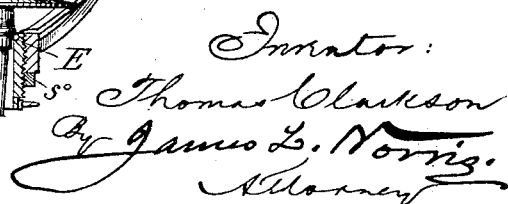 E
s°
Inventor:
Thomas Clarkson
By James L. Norris.
Attorney